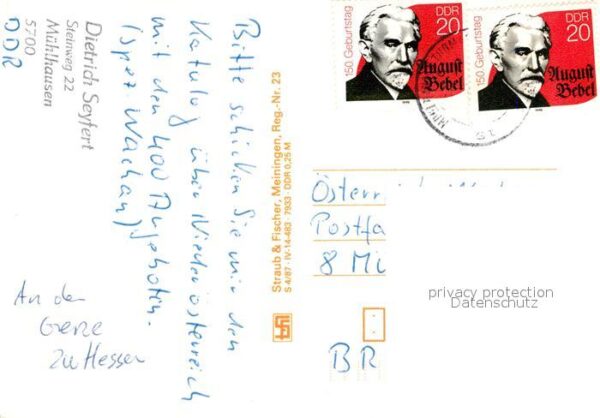 Dietrich Seyfert
Steinweg 22
Mühlhausen
5700
DDR
Bitte schicken Sie mir den
Katalog über Niederösterreich
mit den 400 Angeboten.
(spez Wachau)
An der
Grenze
zu Hessen
Straub & Fischer, Meiningen, Reg.-Nr. 23
S 4/87 · IV-14-483 · 7933 · DDR 0,25 M
150. Geburtstag
DDR
20
August
Bebel
150. Geburtstag
DDR
20
August
Bebel
Österr
Postfa
8 Mü
BR
privacy protection
Datenschutz